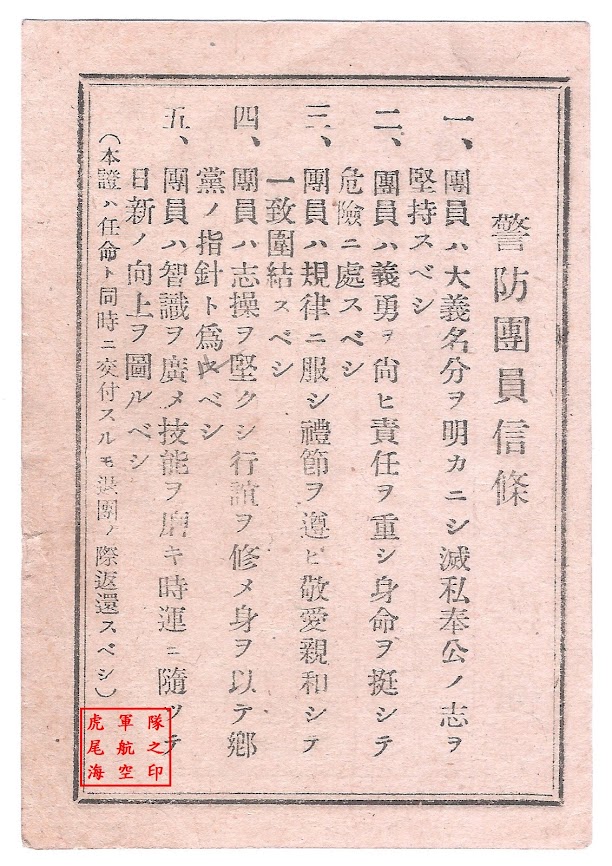 警防團員信條
一、團員ハ大義名分ヲ明カニシ滅私奉公ノ志ヲ
堅持スベシ
二、團員ハ義勇ヲ尙ヒ責任ヲ重シ身命ヲ挺シテ
危險ニ處スベシ
三、團員ハ規律ニ服シ禮節ヲ遵ヒ敬愛親和シテ
一致團結スベシ
四、團員ハ志操ヲ堅クシ行誼ヲ修メ身ヲ以テ鄕
黨ノ指針ト爲スベシ
五、團員ハ智識ヲ廣メ技能ヲ磨キ時運ニ隨ツテ
日新ノ向上ヲ圖ルベシ
(本證ハ任命ト同時ニ交付スルモ退團ノ際返還スベシ)
隊之印
軍航空
虎尾海